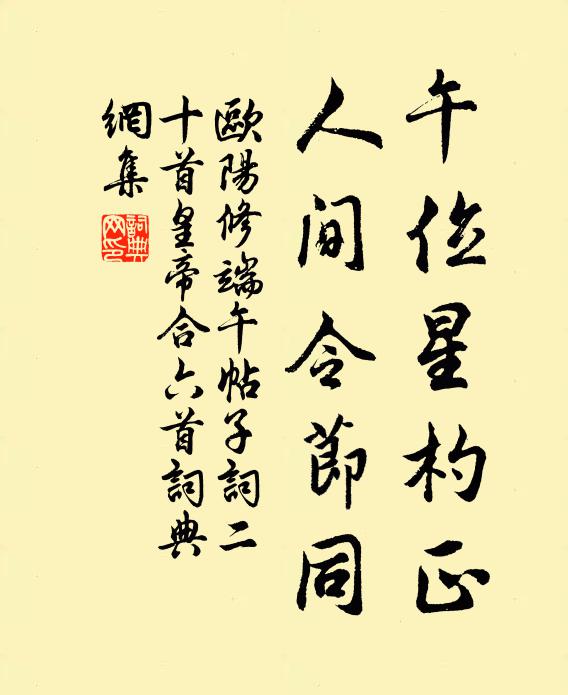 午位星杓正
人間令節同
歐陽修端午帖子詞二
十首皇帝合六首詞典
網集
詞典
网印